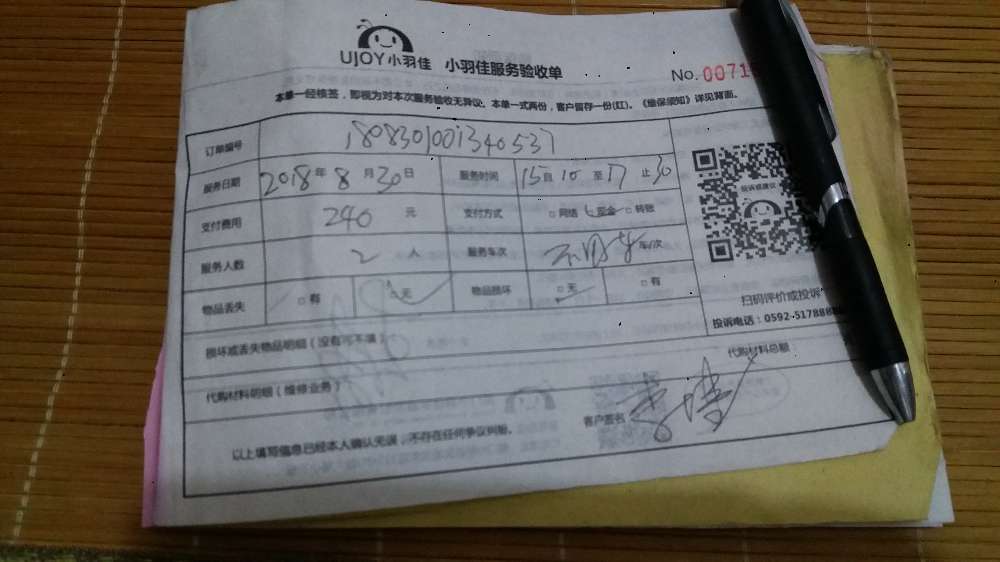 UJOY小羽佳 小羽佳服务验收单
No. 0071
本单一经核签，即视为对本次服务验收无异议。本单一式两份，客户留存一份(红)。《维保须知》详见背面。
订单编号 1808301001340537
服务日期 2018年8月30日 服务时间 15自10至17止30
支付费用 240元 支付方式 □网络 □现金 □转账
服务人数 2人 服务车次 车/次
物品丢失 □有 □无 物品损坏 □无 □有
投诉或建议
扫码评价或投诉
投诉电话：0592-517888
损坏或丢失物品明细（没有可不填）
代购材料明细（维修业务） 代购材料总额
以上填写信息已经本人确认无误，不存在任何争议纠纷。 客户签名